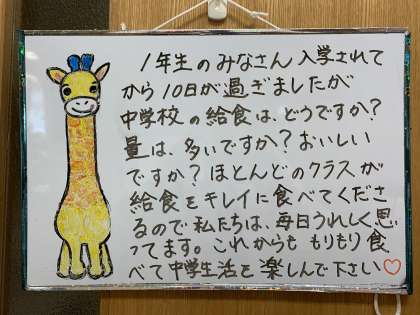 1年生のみなさん入学されて
から10日が過ぎましたが
中学校の給食は、どうですか?
量は、多いですか?おいしい
ですか?ほとんどのクラスが
給食をキレイに食べてくださ
るので私たちは、毎日うれしく思
ってます。これからももりもり食
べて中学生活を楽しんで下さい♡